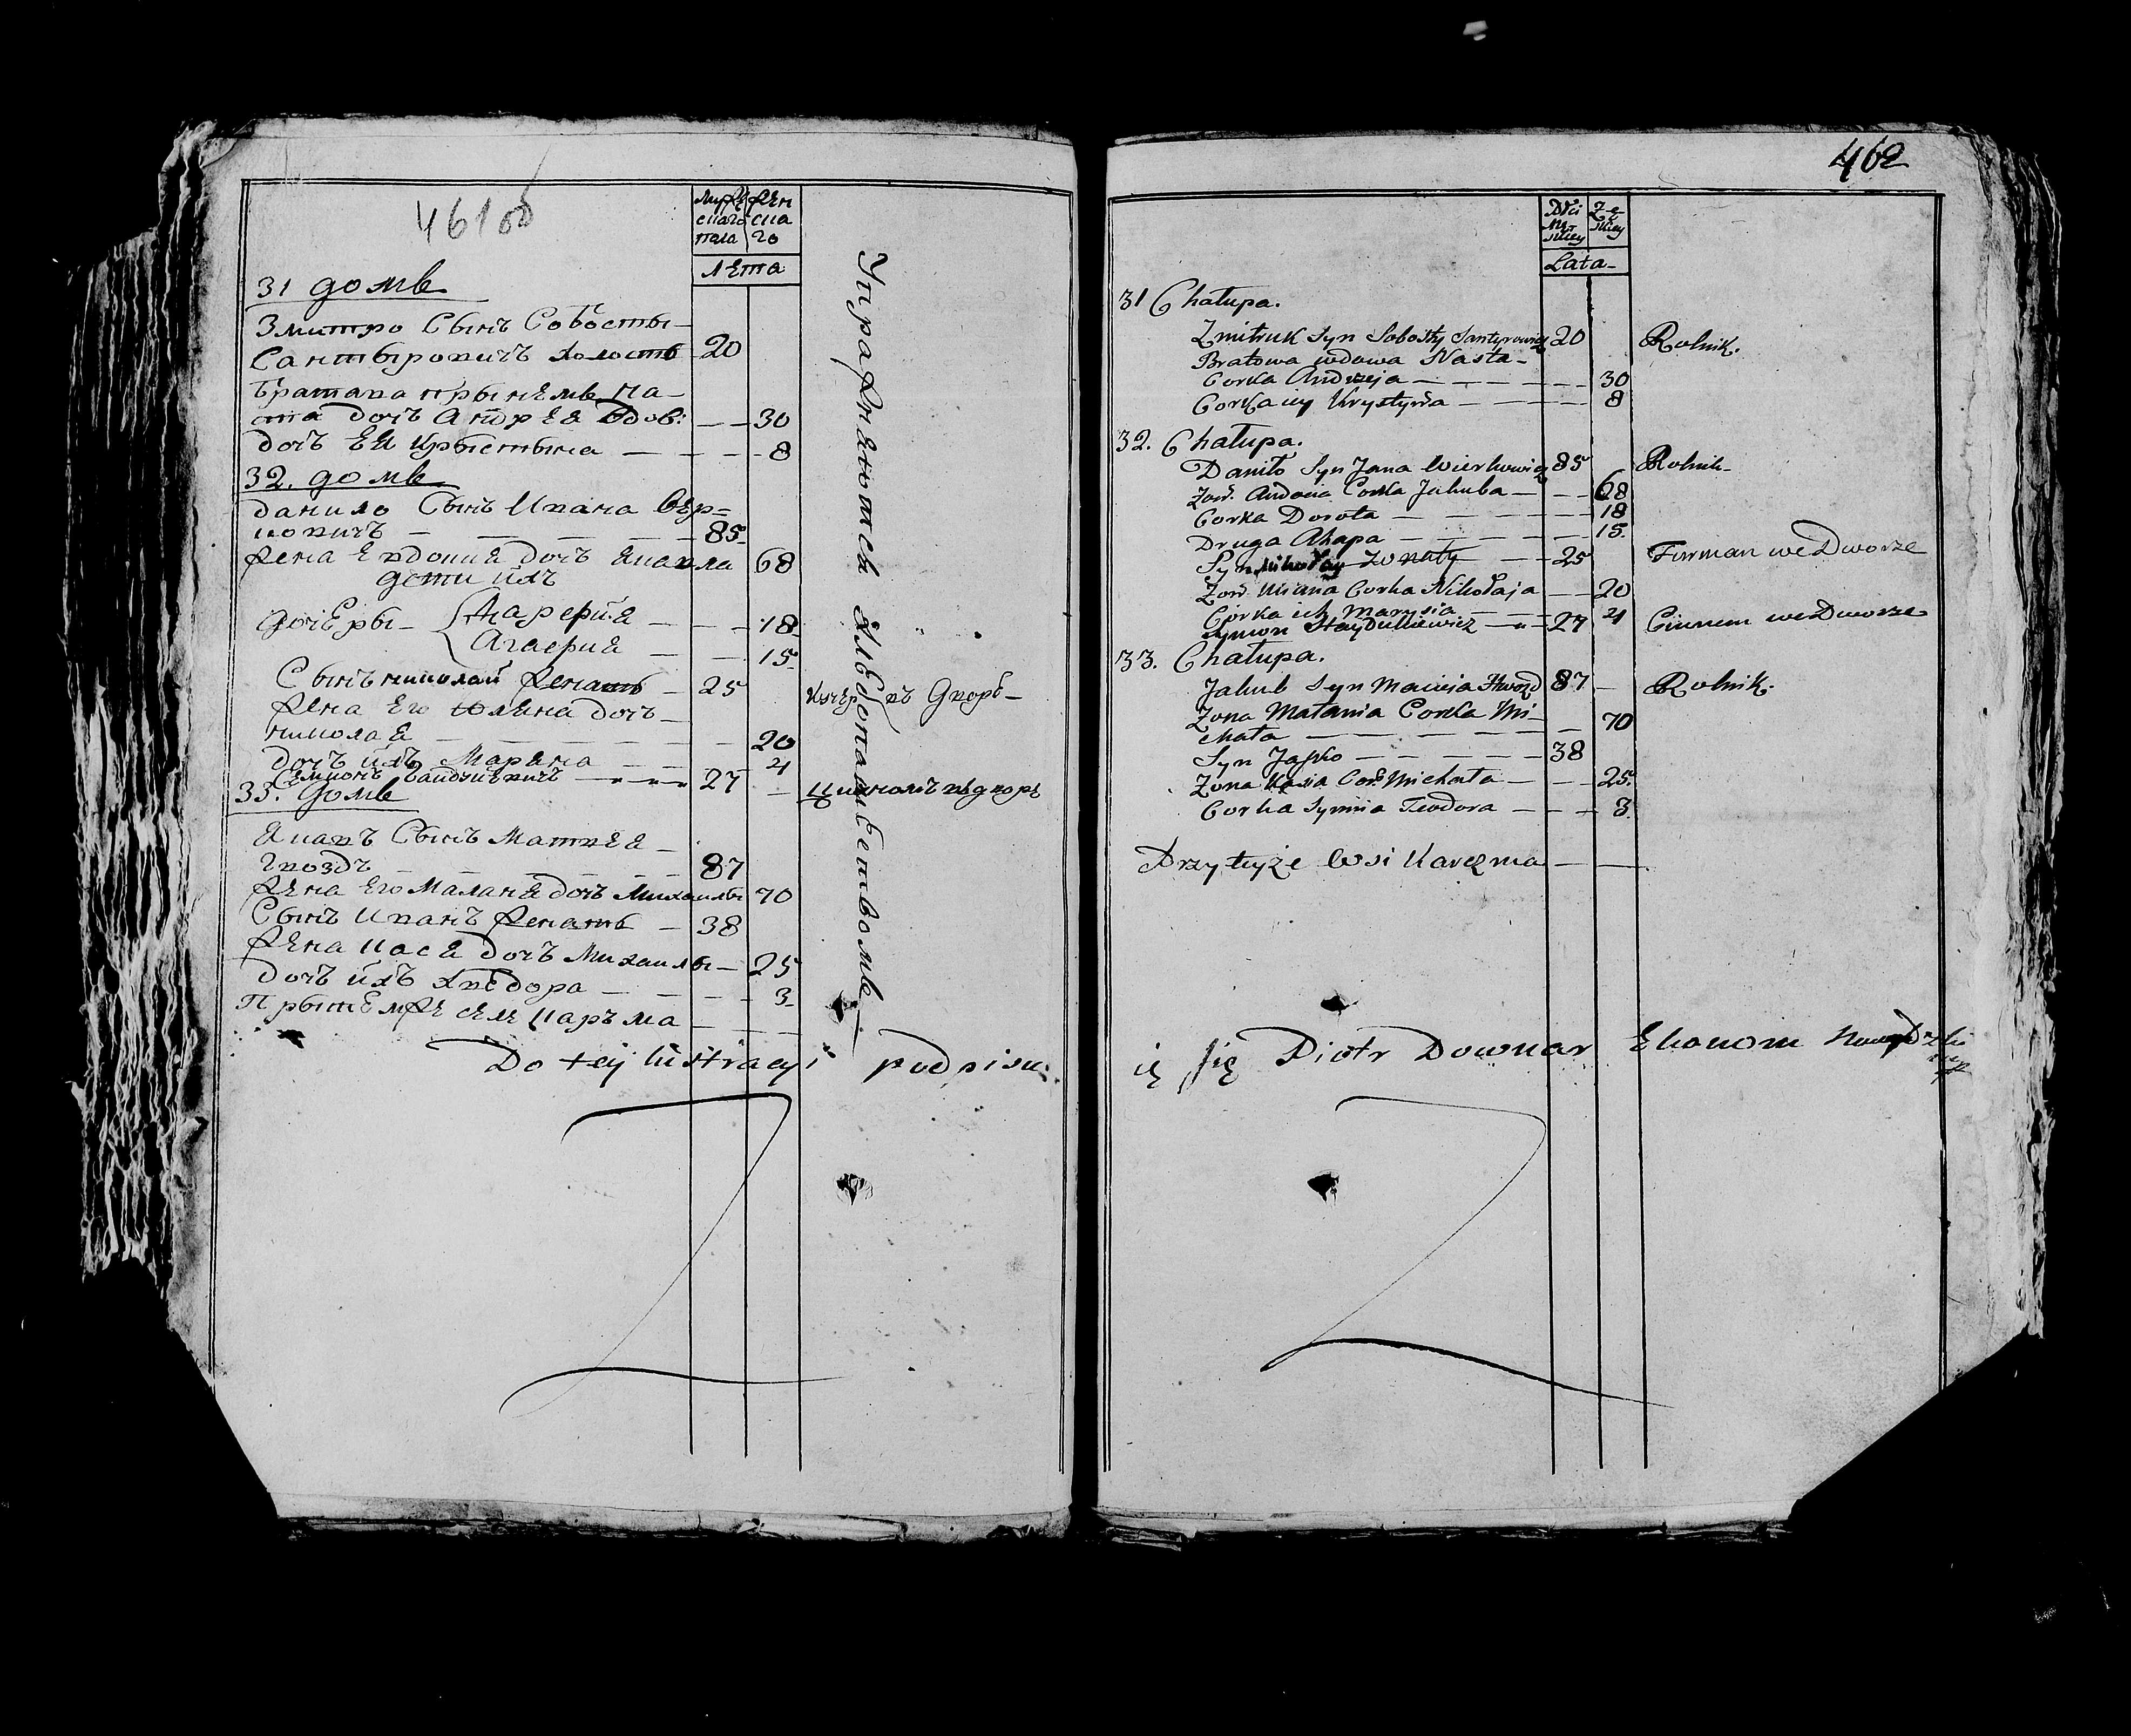 461 об
мужескаго пола
женскаго
лета
31 домъ
Змитро Сынъ Собосты
Сантыровичъ холостъ 20
братава прынемъ На-
ста дочъ Андрея вдов: 30
дочъ ей Крыстына 8
32. домъ
данило Сынъ Ивана Вер=
ковичъ 85
жена Евдокия дочъ Якавла 68
дети ихъ
дочеры 18
Агаефия 15
Сынъ николай женатъ 25
жена его Юляна дочъ
николая 20
дочъ ихъ Марына 4
27
33. домъ
Якавъ Сынъ Матвея
Гвоздъ 87
жена его Маланя дочъ Михаилы 70
Сынъ Иванъ женатъ 38
жена Кася дочъ Михаилы 25
дочъ ихъ Хведора 3
Прытемже селе Каръма
Упражнаютса хлебопашествомъ
Кучер въ дворе
Do tej lustracyi podpisu
462
Płci męskiey
Żeńskiey
Lata
31 Chałupa.
Zmitruk Syn Sobosty Santyrowicz 20 Rolnik.
Bratowa wdowa Nasta
Corka Andrzeja 30
Corka iey Krystyna 8
32. Chałupa.
Daniło Syn Jana Wierkowicz 85 Rolnik
Żon. Audocia Corka Jakuba 68
Corka Dorota 18
Druga Ahapa 15.
Syn Mikołay Żonaty 25 Furman we Dworze
Żon Uliana Corka Nikołaja 20
Corka ich Marysia 4
Symon 27 we Dworze
33. Chałupa.
Jakub Syn Macieja Hwozd 87 Rolnik.
Żona Matania Corka Mi-
chała 70
Syn Jaśko 38
Żona Kasia Cor. Michała 25.
Corka Teodora 3.
Przy teyże Wsi Karczma
ię się Piotr Downar Ekonom